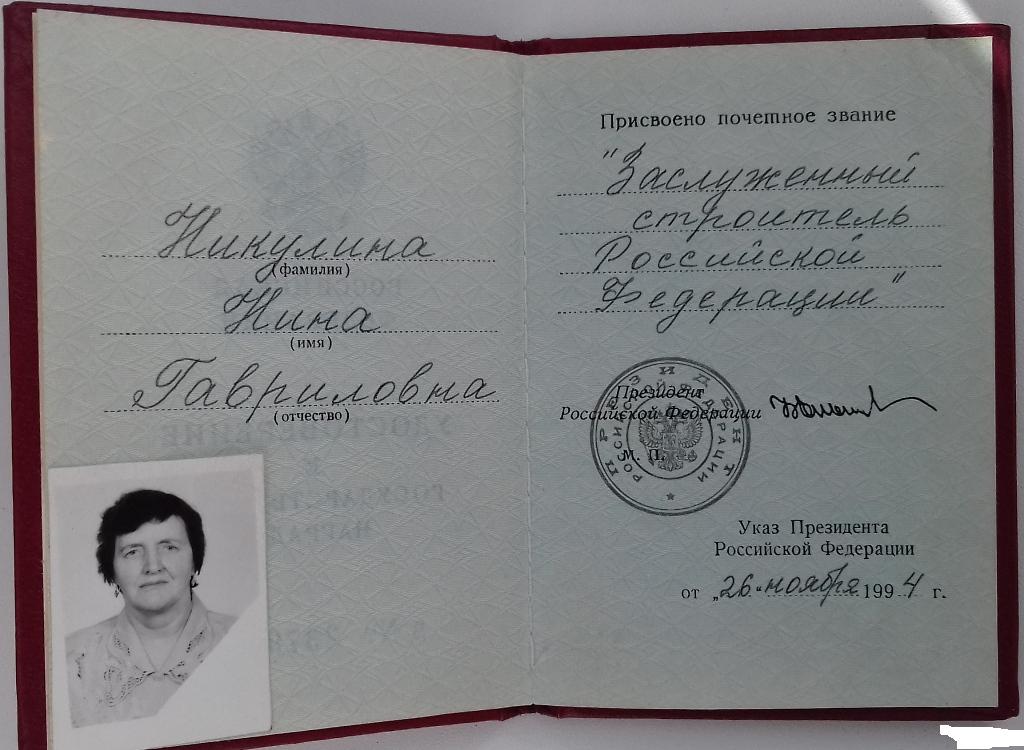 Никулина
(фамилия)
Нина
(имя)
Гавриловна
(отчество)
Присвоено почетное звание
"Заслуженный
строитель
Российской
Федерации"
Президент
Российской Федерации
М. П.
ПРЕЗИДЕНТ
РОССИЙСКОЙ ФЕДЕРАЦИИ
Указ Президента
Российской Федерации
от „26“ ноября 1994 г.